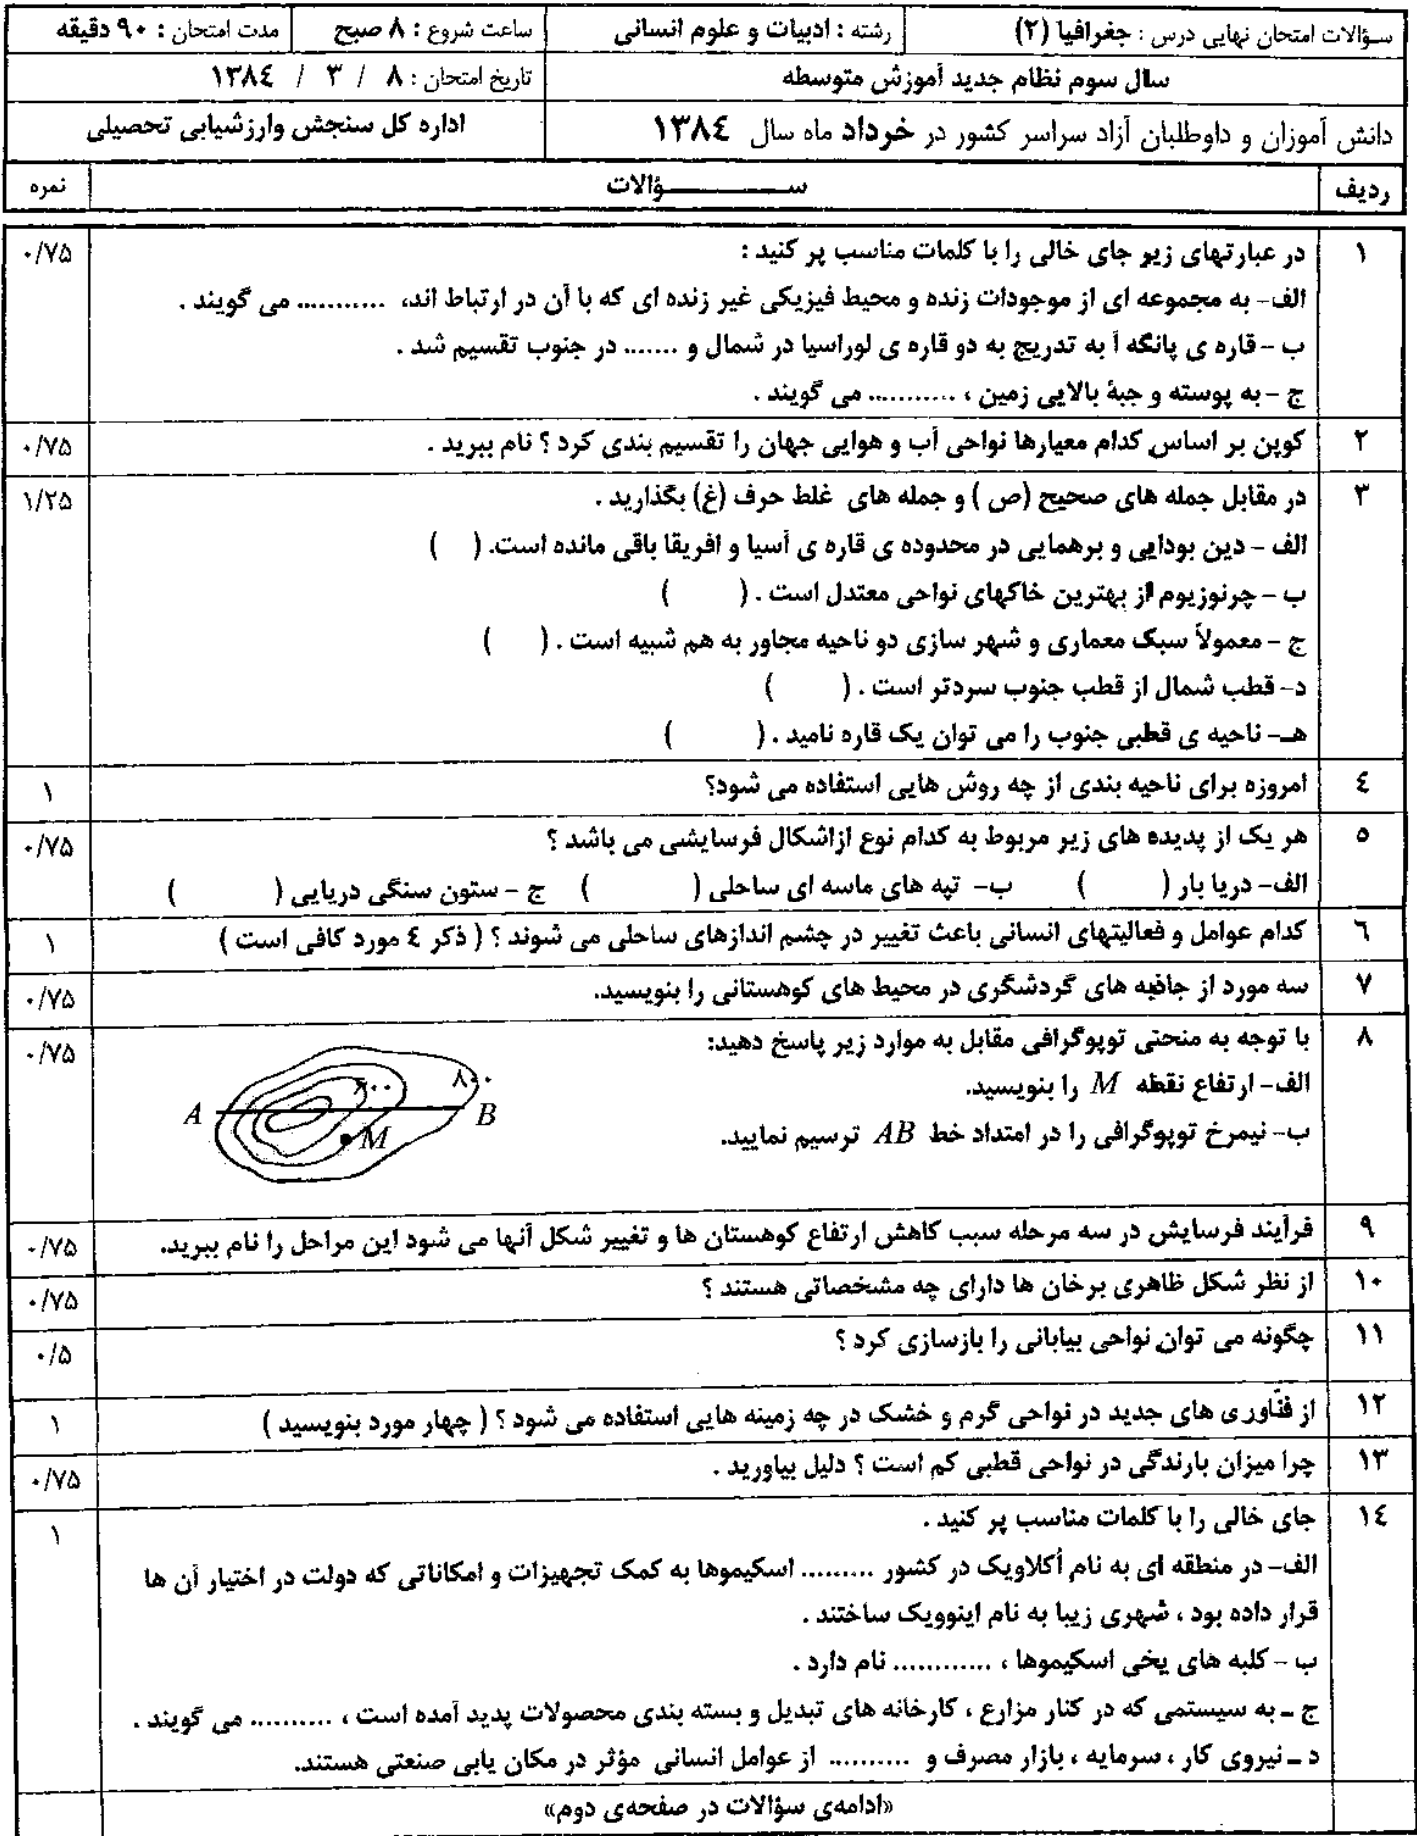 سؤالات امتحان نهایی درس : جغرافیا (۲) رشته : ادبیات و علوم انسانی ساعت شروع : ۸ صبح مدت امتحان : ۹۰ دقیقه
سال سوم نظام جدید آموزش متوسطه تاریخ امتحان : ۸ / ۳ / ۱۳۸٤
دانش آموزان و داوطلبان آزاد سراسر کشور در خرداد ماه سال ۱۳۸٤ اداره کل سنجش وارزشیابی تحصیلی
ردیف ســـــــــــؤالات نمره
۱ در عبارتهای زیر جای خالی را با کلمات مناسب پر کنید : ۰/۷۵
الف- به مجموعه ای از موجودات زنده و محیط فیزیکی غیر زنده ای که با آن در ارتباط اند، ........... می گویند .
ب - قاره ی پانگه آ به تدریج به دو قاره ی لوراسیا در شمال و ....... در جنوب تقسیم شد .
ج - به پوسته و جبهٔ بالایی زمین ، ........... می گویند .
۲ کوپن بر اساس کدام معیارها نواحی آب و هوایی جهان را تقسیم بندی کرد ؟ نام ببرید . ۰/۷۵
۳ در مقابل جمله های صحیح (ص ) و جمله های غلط حرف (غ) بگذارید . ۱/۲۵
الف - دین بودایی و برهمایی در محدوده ی قاره ی آسیا و افریقا باقی مانده است. ( )
ب - چرنوزیوم از بهترین خاکهای نواحی معتدل است . ( )
ج - معمولاً سبک معماری و شهر سازی دو ناحیه مجاور به هم شبیه است . ( )
د- قطب شمال از قطب جنوب سردتر است . ( )
هـ- ناحیه ی قطبی جنوب را می توان یک قاره نامید . ( )
٤ امروزه برای ناحیه بندی از چه روش هایی استفاده می شود؟ ۱
۵ هر یک از پدیده های زیر مربوط به کدام نوع ازاشکال فرسایشی می باشد ؟ ۰/۷۵
الف- دریا بار ( ) ب- تپه های ماسه ای ساحلی ( ) ج - ستون سنگی دریایی ( )
٦ کدام عوامل و فعالیتهای انسانی باعث تغییر در چشم اندازهای ساحلی می شوند ؟ ( ذکر ٤ مورد کافی است ) ۱
۷ سه مورد از جاذبه های گردشگری در محیط های کوهستانی را بنویسید. ۰/۷۵
۸ با توجه به منحنی توپوگرافی مقابل به موارد زیر پاسخ دهید: ۰/۷۵
الف- ارتفاع نقطه M را بنویسید.
ب- نیمرخ توپوگرافی را در امتداد خط AB ترسیم نمایید.
۸۰۰
A B
M
۹ فرآیند فرسایش در سه مرحله سبب کاهش ارتفاع کوهستان ها و تغییر شکل آنها می شود این مراحل را نام ببرید. ۰/۷۵
۱۰ از نظر شکل ظاهری برخان ها دارای چه مشخصاتی هستند ؟ ۰/۷۵
۱۱ چگونه می توان نواحی بیابانی را بازسازی کرد ؟ ۰/۵
۱۲ از فنّاوری های جدید در نواحی گرم و خشک در چه زمینه هایی استفاده می شود ؟ ( چهار مورد بنویسید ) ۱
۱۳ چرا میزان بارندگی در نواحی قطبی کم است ؟ دلیل بیاورید . ۰/۷۵
۱٤ جای خالی را با کلمات مناسب پر کنید . ۱
الف- در منطقه ای به نام اُکلاویک در کشور ......... اسکیموها به کمک تجهیزات و امکاناتی که دولت در اختیار آن ها
قرار داده بود ، شهری زیبا به نام اینوویک ساختند .
ب - کلبه های یخی اسکیموها ، ............ نام دارد .
ج - به سیستمی که در کنار مزارع ، کارخانه های تبدیل و بسته بندی محصولات پدید آمده است ، .......... می گویند .
د - نیروی کار ، سرمایه ، بازار مصرف و .......... از عوامل انسانی مؤثر در مکان یابی صنعتی هستند.
«ادامه‌ی سؤالات در صفحه‌ی دوم»